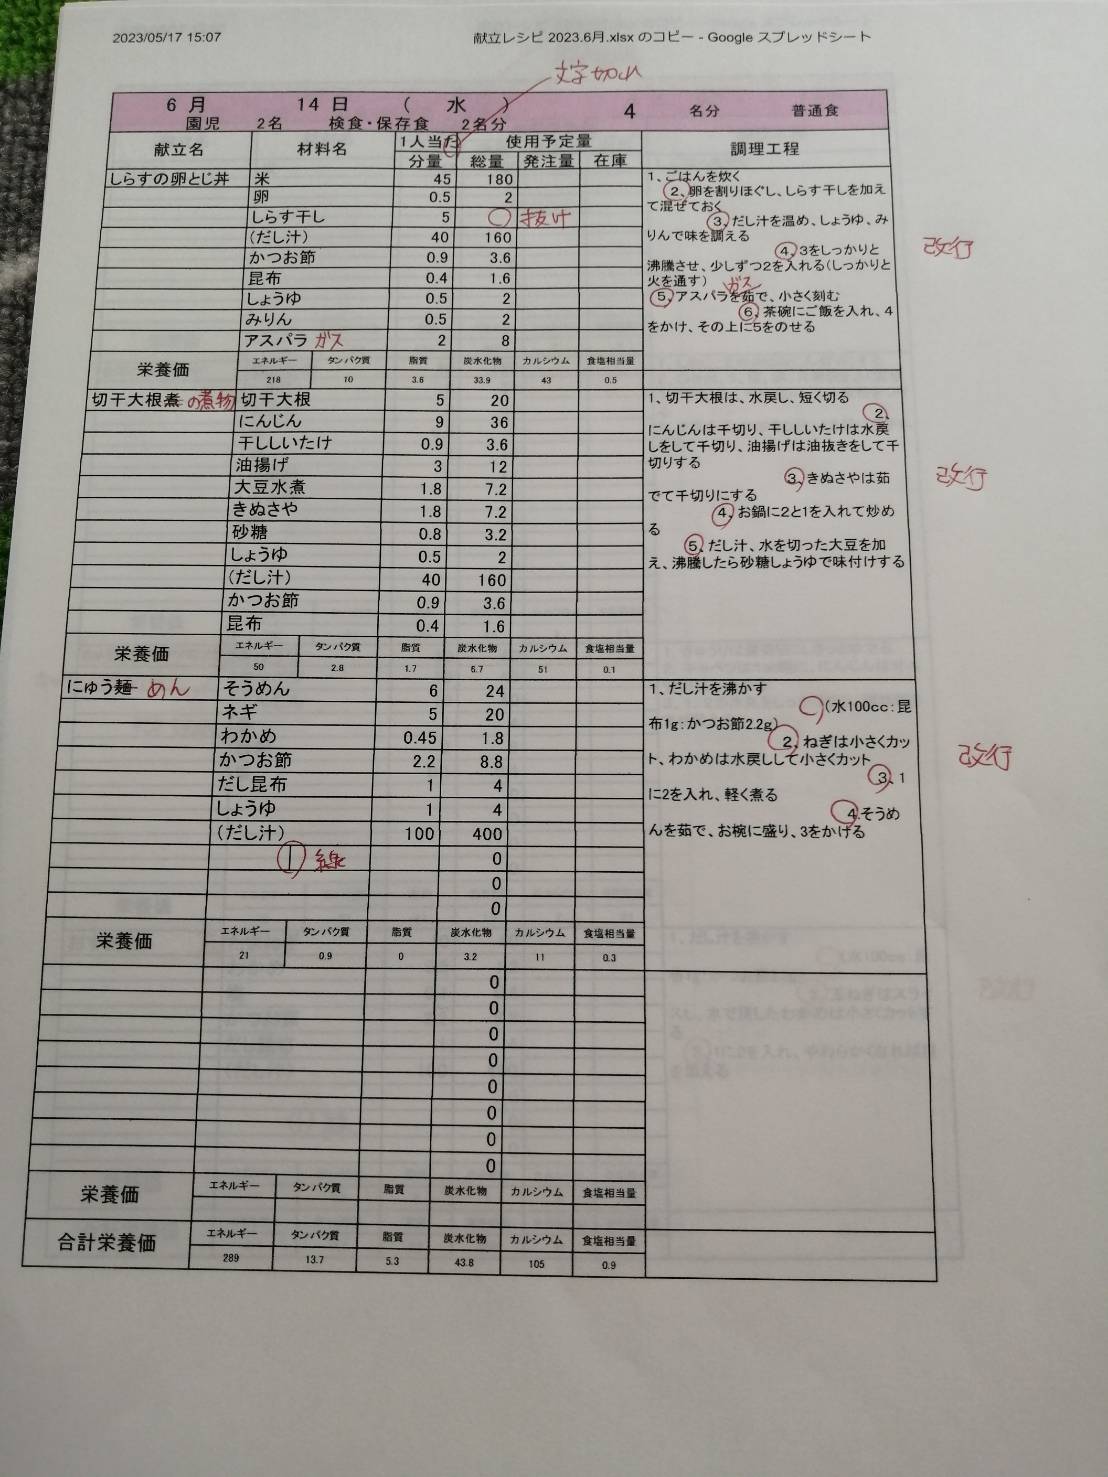 2023/05/17 15:07 献立レシピ 2023.6月.xlsx のコピー - Google スプレッドシート
文字切れ
6 月 14 日 ( 水 ) 4 名分 普通食
園児 2名 検食・保存食 2名分
献立名 材料名 1人当た 使用予定量 調理工程
分量 総量 発注量 在庫
しらすの卵とじ丼 米 45 180
卵 0.5 2
しらす干し 5 抜け
(だし汁) 40 160
かつお節 0.9 3.6
昆布 0.4 1.6
しょうゆ 0.5 2
みりん 0.5 2
アスパラ ガス 2 8
1、ごはんを炊く
2、卵を割りほぐし、しらす干しを加え
て混ぜておく
3、だし汁を温め、しょうゆ、み
りんで味を調える
4、3をしっかりと
沸騰させ、少しずつ2を入れる(しっかりと
火を通す)
ガス
5、アスパラを茹で、小さく刻む
6、茶碗にご飯を入れ、4
をかけ、その上に5をのせる
改行
栄養価 エネルギー タンパク質 脂質 炭水化物 カルシウム 食塩相当量
218 10 3.6 33.9 43 0.5
切干大根煮 の煮物 切干大根 5 20
にんじん 9 36
干ししいたけ 0.9 3.6
油揚げ 3 12
大豆水煮 1.8 7.2
きぬさや 1.8 7.2
砂糖 0.8 3.2
しょうゆ 0.5 2
(だし汁) 40 160
かつお節 0.9 3.6
昆布 0.4 1.6
1、切干大根は、水戻し、短く切る
2、
にんじんは千切り、干ししいたけは水戻
しをして千切り、油揚げは油抜きをして千
切りする
3、きぬさやは茹
でて千切りにする
4、お鍋に2と1を入れて炒め
る
5、だし汁、水を切った大豆を加
え、沸騰したら砂糖しょうゆで味付けする
改行
栄養価 エネルギー タンパク質 脂質 炭水化物 カルシウム 食塩相当量
50 2.8 1.7 6.7 51 0.1
にゅう麺 めん そうめん 6 24
ネギ 5 20
わかめ 0.45 1.8
かつお節 2.2 8.8
だし昆布 1 4
しょうゆ 1 4
(だし汁) 100 400
線 0
0
0
1、だし汁を沸かす
(水100cc:昆
布1g:かつお節2.2g)
2、ねぎは小さくカッ
ト、わかめは水戻しして小さくカット
3、1
に2を入れ、軽く煮る
4.そうめ
んを茹で、お椀に盛り、3をかける
改行
栄養価 エネルギー タンパク質 脂質 炭水化物 カルシウム 食塩相当量
21 0.9 0 3.2 11 0.3
0
0
0
0
0
0
0
0
栄養価 エネルギー タンパク質 脂質 炭水化物 カルシウム 食塩相当量
合計栄養価 エネルギー タンパク質 脂質 炭水化物 カルシウム 食塩相当量
289 13.7 5.3 43.8 105 0.9